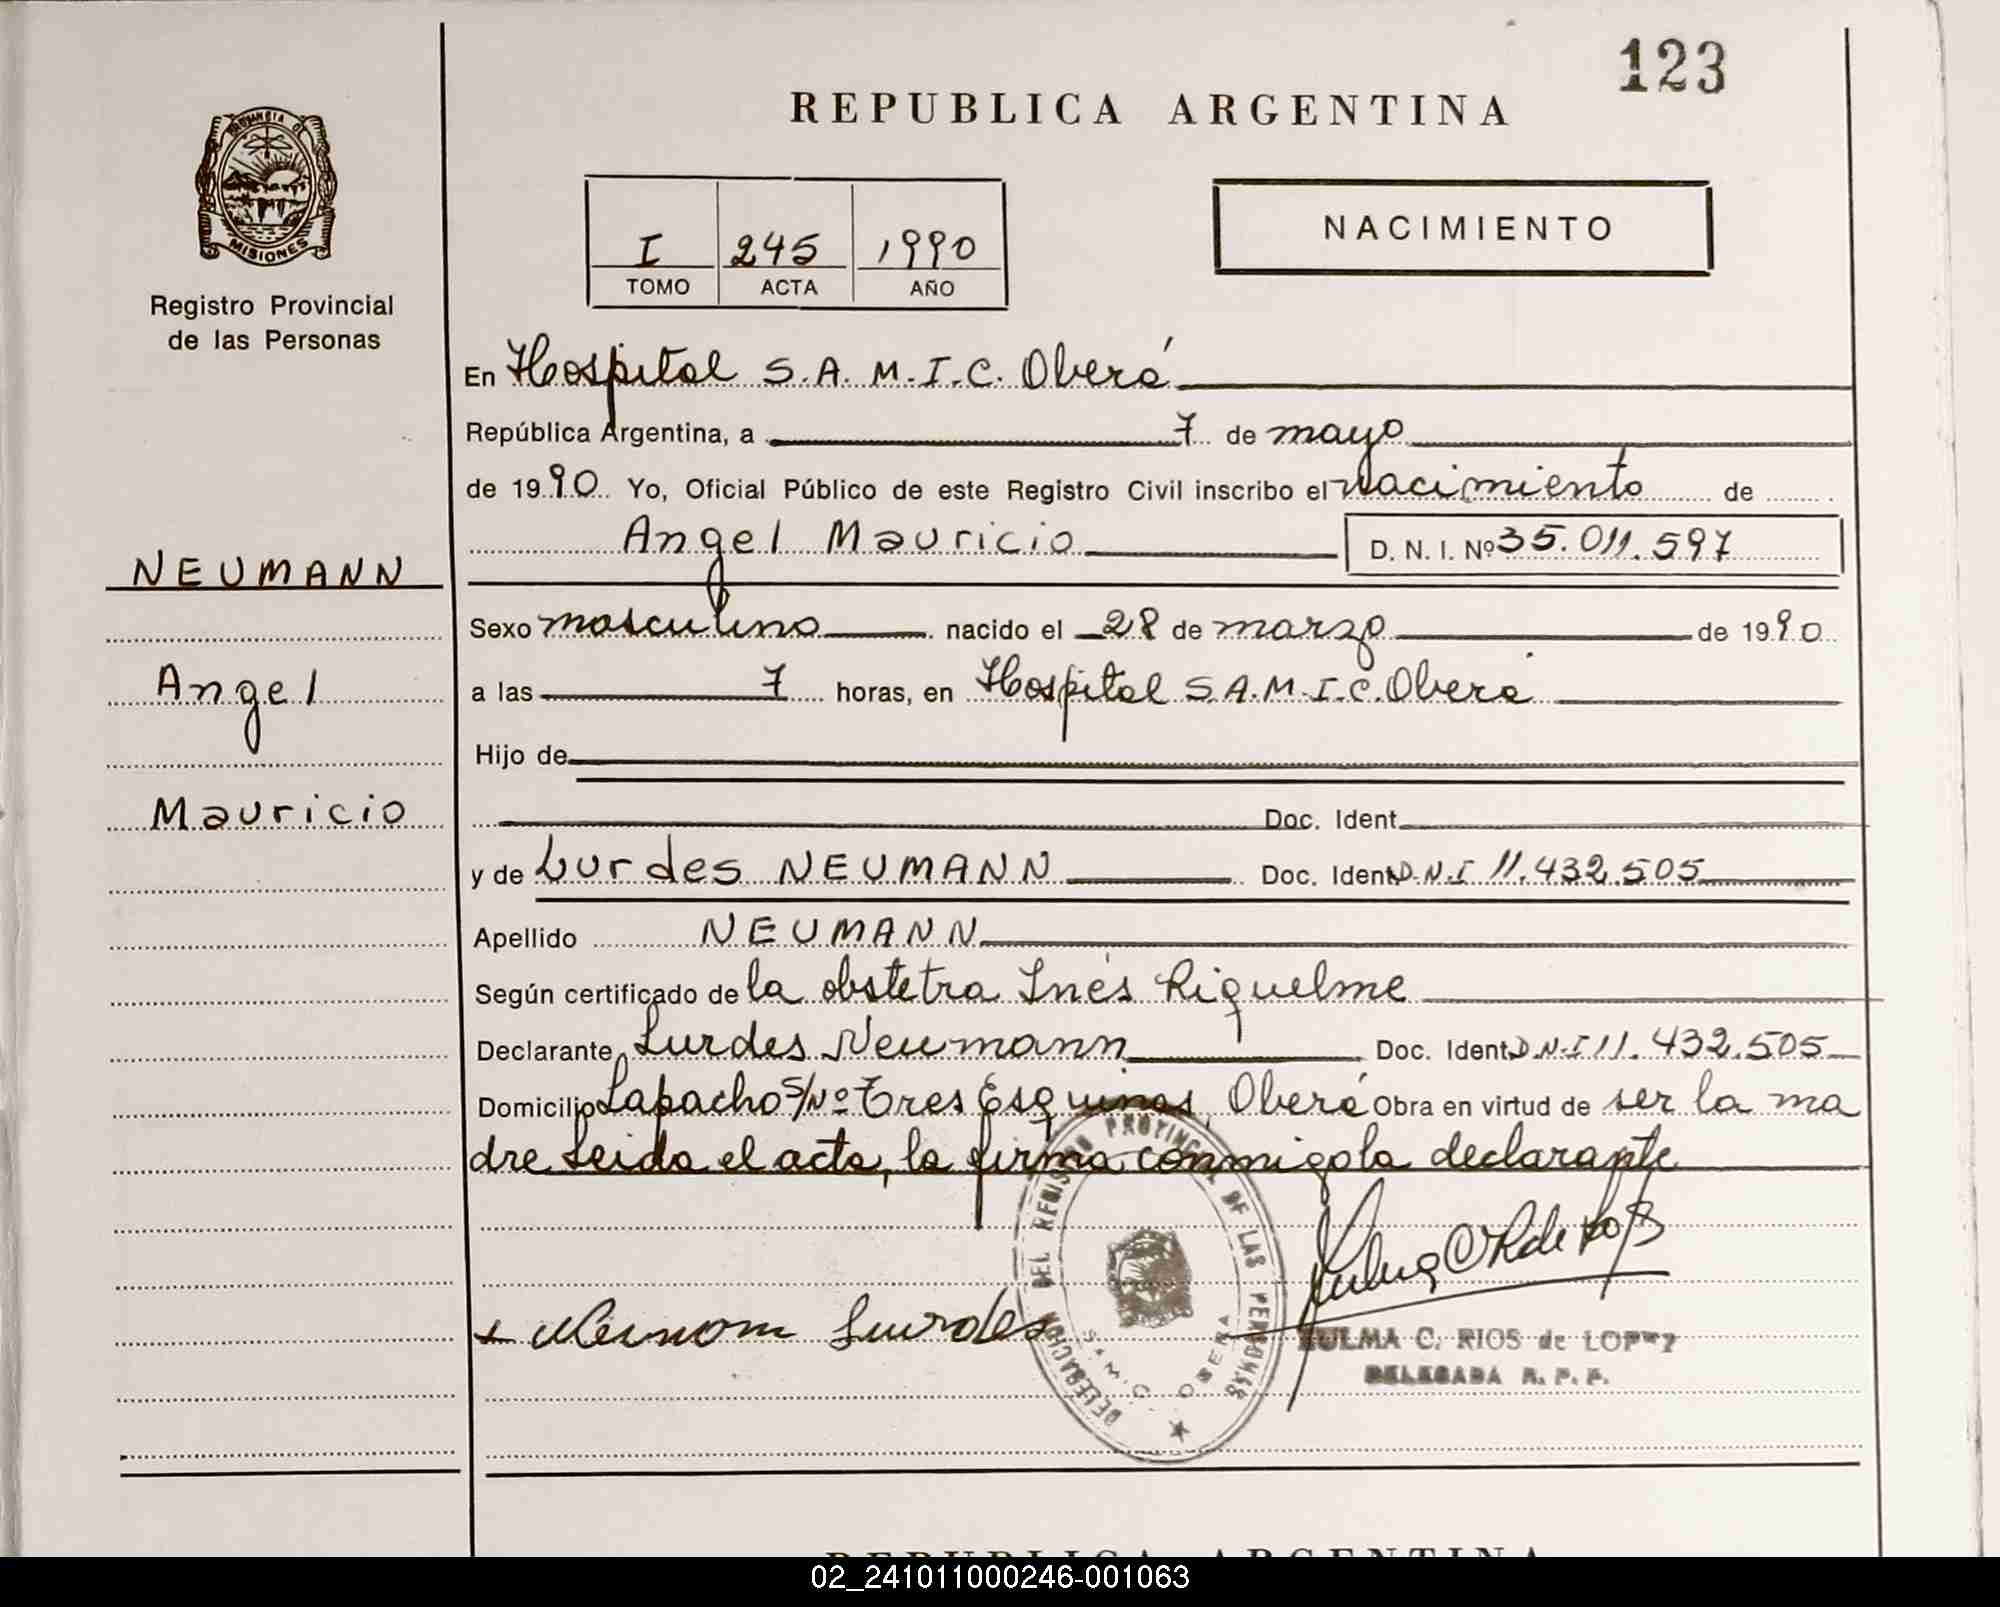 123
REPUBLICA ARGENTINA
PROVINCIA D
MISIONES
Registro Provincial
de las Personas
I 245 1990
TOMO ACTA AÑO
NACIMIENTO
En Hospital S.A.M.I.C. Oberá
República Argentina, a 7 de mayo
de 1990 Yo, Oficial Público de este Registro Civil inscribo el nacimiento de
Angel Mauricio D. N. I. Nº 35.011.597
NEUMANN
Angel
Mauricio
Sexo masculino nacido el 28 de marzo de 1990
a las 7 horas, en Hospital S.A.M.I.C. Oberá
Hijo de
Doc. Ident
y de Lurdes NEUMANN Doc. Ident D.N.I 11.432.505
Apellido NEUMANN
Según certificado de la obstetra Inés Riquelme
Declarante Lurdes Neumann Doc. Ident D.N.I 11.432.505
Domicilio Lapacho S/Nº Tres Esquinas, Oberá Obra en virtud de ser la ma
dre leida el acta, la firma conmigo la declarante
DELEGACION DEL REGISTRO PROVINCIAL DE LAS PERSONAS
S.A.M.I.C. OBERA
Lurdes
ZULMA C. RIOS de LOPEZ
DELEGADA R. P. P.
REPUBLICA ARGENTINA
02_241011000246-001063